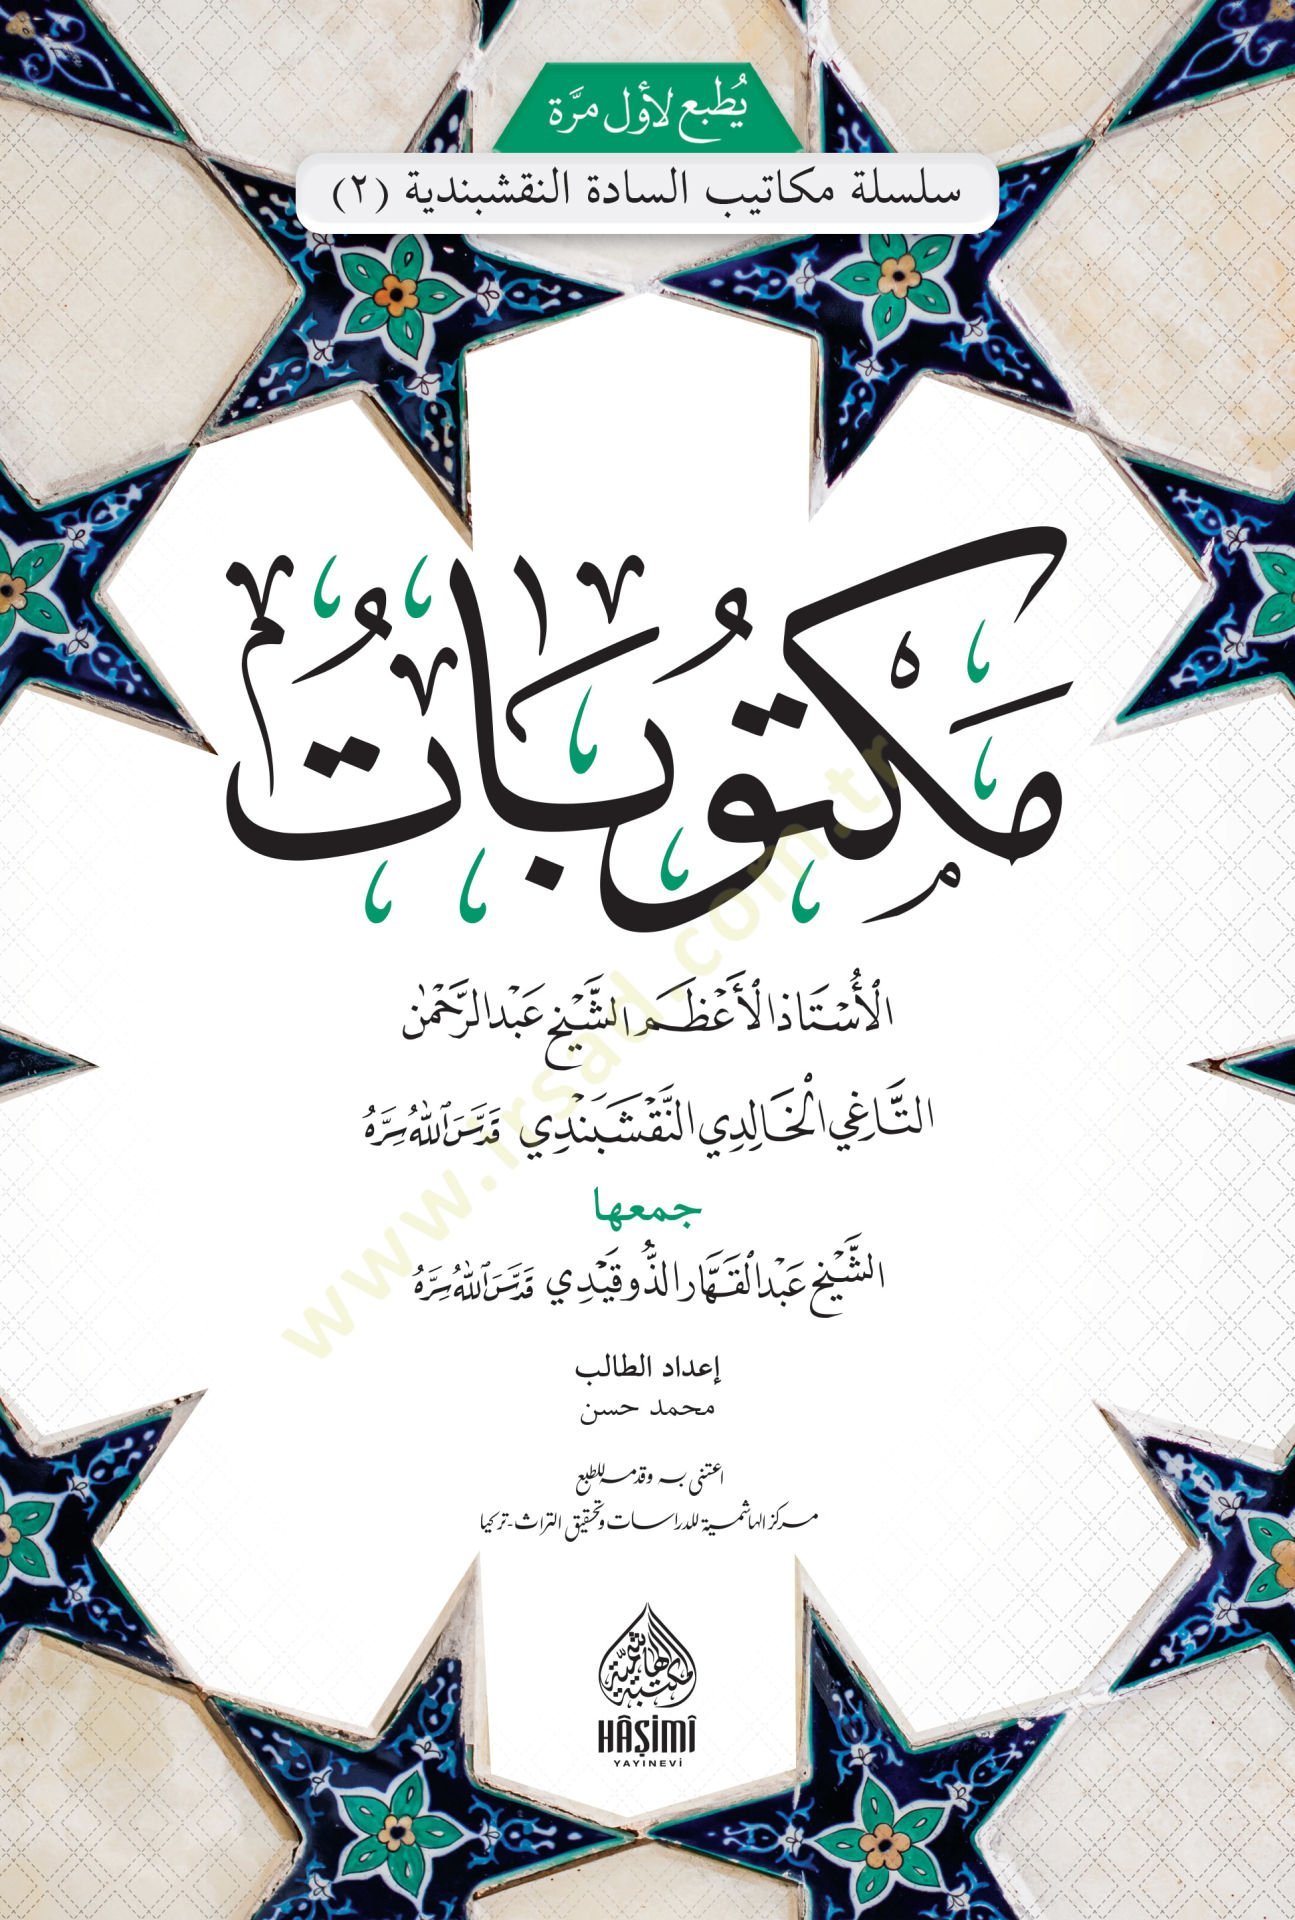 يُطبع لأول مرَّة
سلسلة مكاتيب السادة النقشبندية (٢)
مَكْتُوبَاتُ
الْأُسْتَاذِ الْأَعْظَمِ الشَّيْخِ عَبْدِ الرَّحْمٰنِ
التَّاغِي الْخَالِدِي النَّقْشَبَنْدِي قَدَّسَ اللهُ سِرَّهُ
جمعها
الشَّيْخ عَبْدُ الْقَهَّار الذُّوقَيْدِي قَدَّسَ اللهُ سِرَّهُ
إعداد الطالب
محمد حسن
اعتنى به وقدمه للطبع
مركز الهاشمية للدراسات وتحقيق التراث-تركيا
المكتبة الهاشمية
HÂŞİMÎ
YAYINEVİ
www.irsad.com.tr